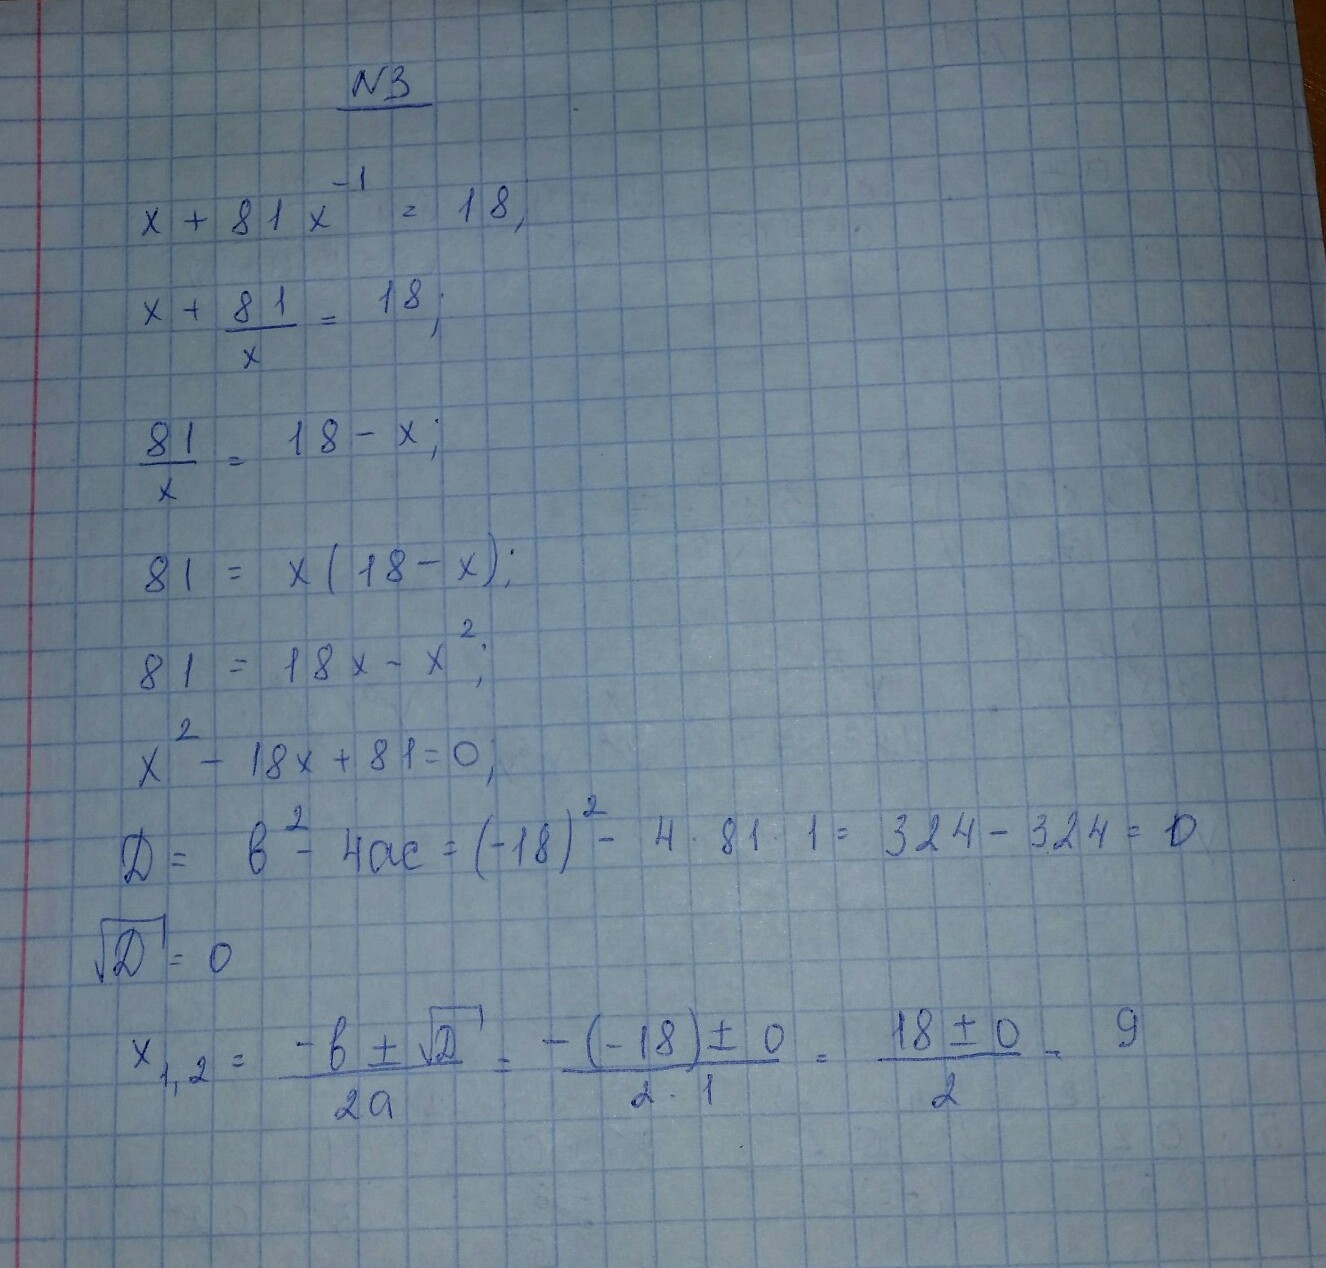 N3
x + 81x⁻¹ = 18;
x + 81/x = 18;
81/x = 18 - x;
81 = x(18 - x);
81 = 18x - x²;
x² - 18x + 81 = 0;
D = b² - 4ac = (-18)² - 4 · 81 · 1 = 324 - 324 = 0
√D = 0
x₁,₂ = (-b ± √D)/(2a) = (-(-18) ± 0)/(2 · 1) = (18 ± 0)/2 = 9